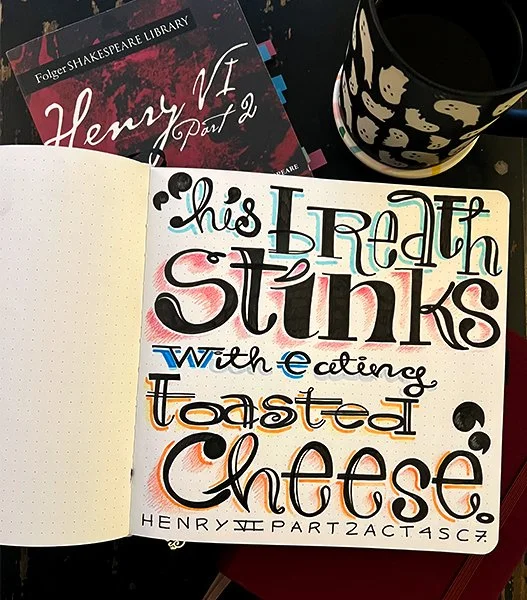 Folger SHAKESPEARE LIBRARY
Henry VI
Part 2
“his breath
stinks
with eating
toasted
cheese.”
HENRY VI PART 2 ACT 4 SC 7.